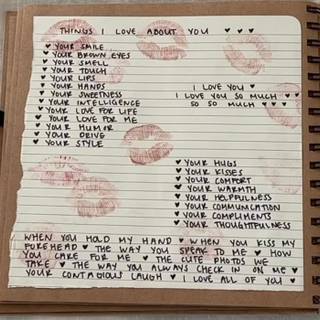 THINGS I LOVE ABOUT YOU ♥ ♥ ♥
♥ YOUR SMILE
♥ YOUR BROWN EYES
♥ YOUR SMELL
♥ YOUR TOUCH
♥ YOUR LIPS
♥ YOUR HANDS
♥ YOUR SWEETNESS
♥ YOUR INTELLIGENCE
♥ YOUR LOVE FOR LIFE
♥ YOUR LOVE FOR ME
♥ YOUR HUMOR
♥ YOUR DRIVE
♥ YOUR STYLE
I LOVE YOU ♥
I LOVE YOU SO MUCH ♥ ♥ ♥
SO SO MUCH ♥ ♥ ♥
♥ YOUR HUGS
♥ YOUR KISSES
♥ YOUR COMFORT
♥ YOUR WARMTH
♥ YOUR HELPFULNESS
♥ YOUR COMMUNICATION
♥ YOUR COMPLIMENTS
♥ YOUR THOUGHTFULNESS
WHEN YOU HOLD MY HAND ♥ WHEN YOU KISS MY
FOREHEAD ♥ THE WAY YOU SPEAK TO ME ♥ HOW
YOU CARE FOR ME ♥ THE CUTE PHOTOS WE
TAKE ♥ THE WAY YOU ALWAYS CHECK IN ON ME ♥
YOUR CONTAGIOUS LAUGH ♥ I LOVE ALL OF YOU ♥